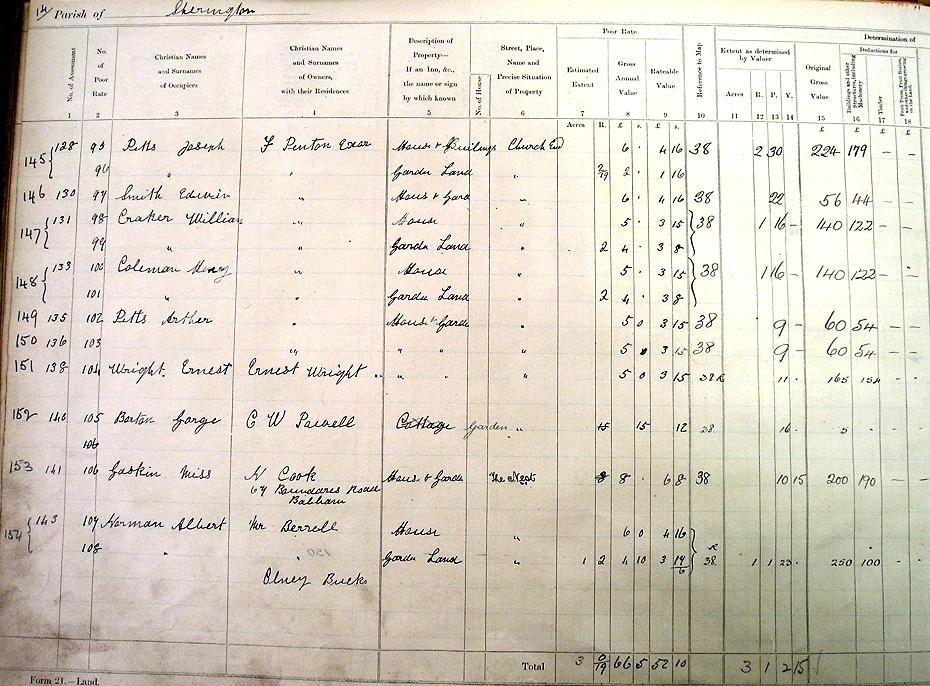 14 Parish of Sherington
Poor Rate
Determination of
No. of Assessment
No. of Poor Rate
Christian Names and Surnames of Occupiers
Christian Names and Surnames of Owners, with their Residences
Description of Property— If an Inn, &c., the name or sign by which known
No. of House
Street, Place, Name and Precise Situation of Property
Estimated Extent
Gross Annual Value
Rateable Value
Reference to Map
Extent as determined by Valuer
Acres R. P. Y.
Original Gross Value
Deductions for
Buildings and other Structures, including Machinery
Timber
Fruit Trees, Fruit Bushes, and other things growing on the Land.
1 2 3 4 5 6 7 8 9 10 11 12 13 14 15 16 17 18
Acres R. £ s. £ s. £ £
145 128 95 Petts Joseph F Penton Exor House & Buildings Church End 6 · 4 16 38 2 30 224 179 – –
96 " Garden Land " 2 · 1 16
146 130 97 Smith Edwin " House & Gard " 6 · 4 16 38 22 56 44 – –
147 131 98 Craker William " House " 5 · 3 15 38 1 16 – 140 122 – –
99 " " Garde Land " 2 4 · 3 8
148 133 100 Coleman Henry " House " 5 · 3 15 38 1 16 – 140 122 – –
101 " " Garde Land " 2 4 · 3 8
149 135 102 Petts Arther " House & Garde " 5 0 3 15 38 9 – 60 54 – –
150 136 103 " " " " 5 0 3 15 38 9 – 60 54 – –
151 138 104 Wright Ernest Ernest Wright " " " 5 0 3 15 38 11 · 165 154 - -
152 140 105 Barton Gorge C W Powell Cottage Garden " 15 15 12 38 16 · 5
106
153 141 106 Gaskin Miss N Cook House & Garde The Nest 8 8 · 6 8 38 10 15 200 190 – –
67 Boundares Road
Balham
154 143 107 Norman Albert Mr Berrell House " 6 0 4 16
108 " " 150 Garde Land " 1 2 4 10 3 38 R 1 1 23 · 250 100 - -
Olney Bucks
Total 3 66 5 52 10 3 1 2 15
Form 21.—Land.